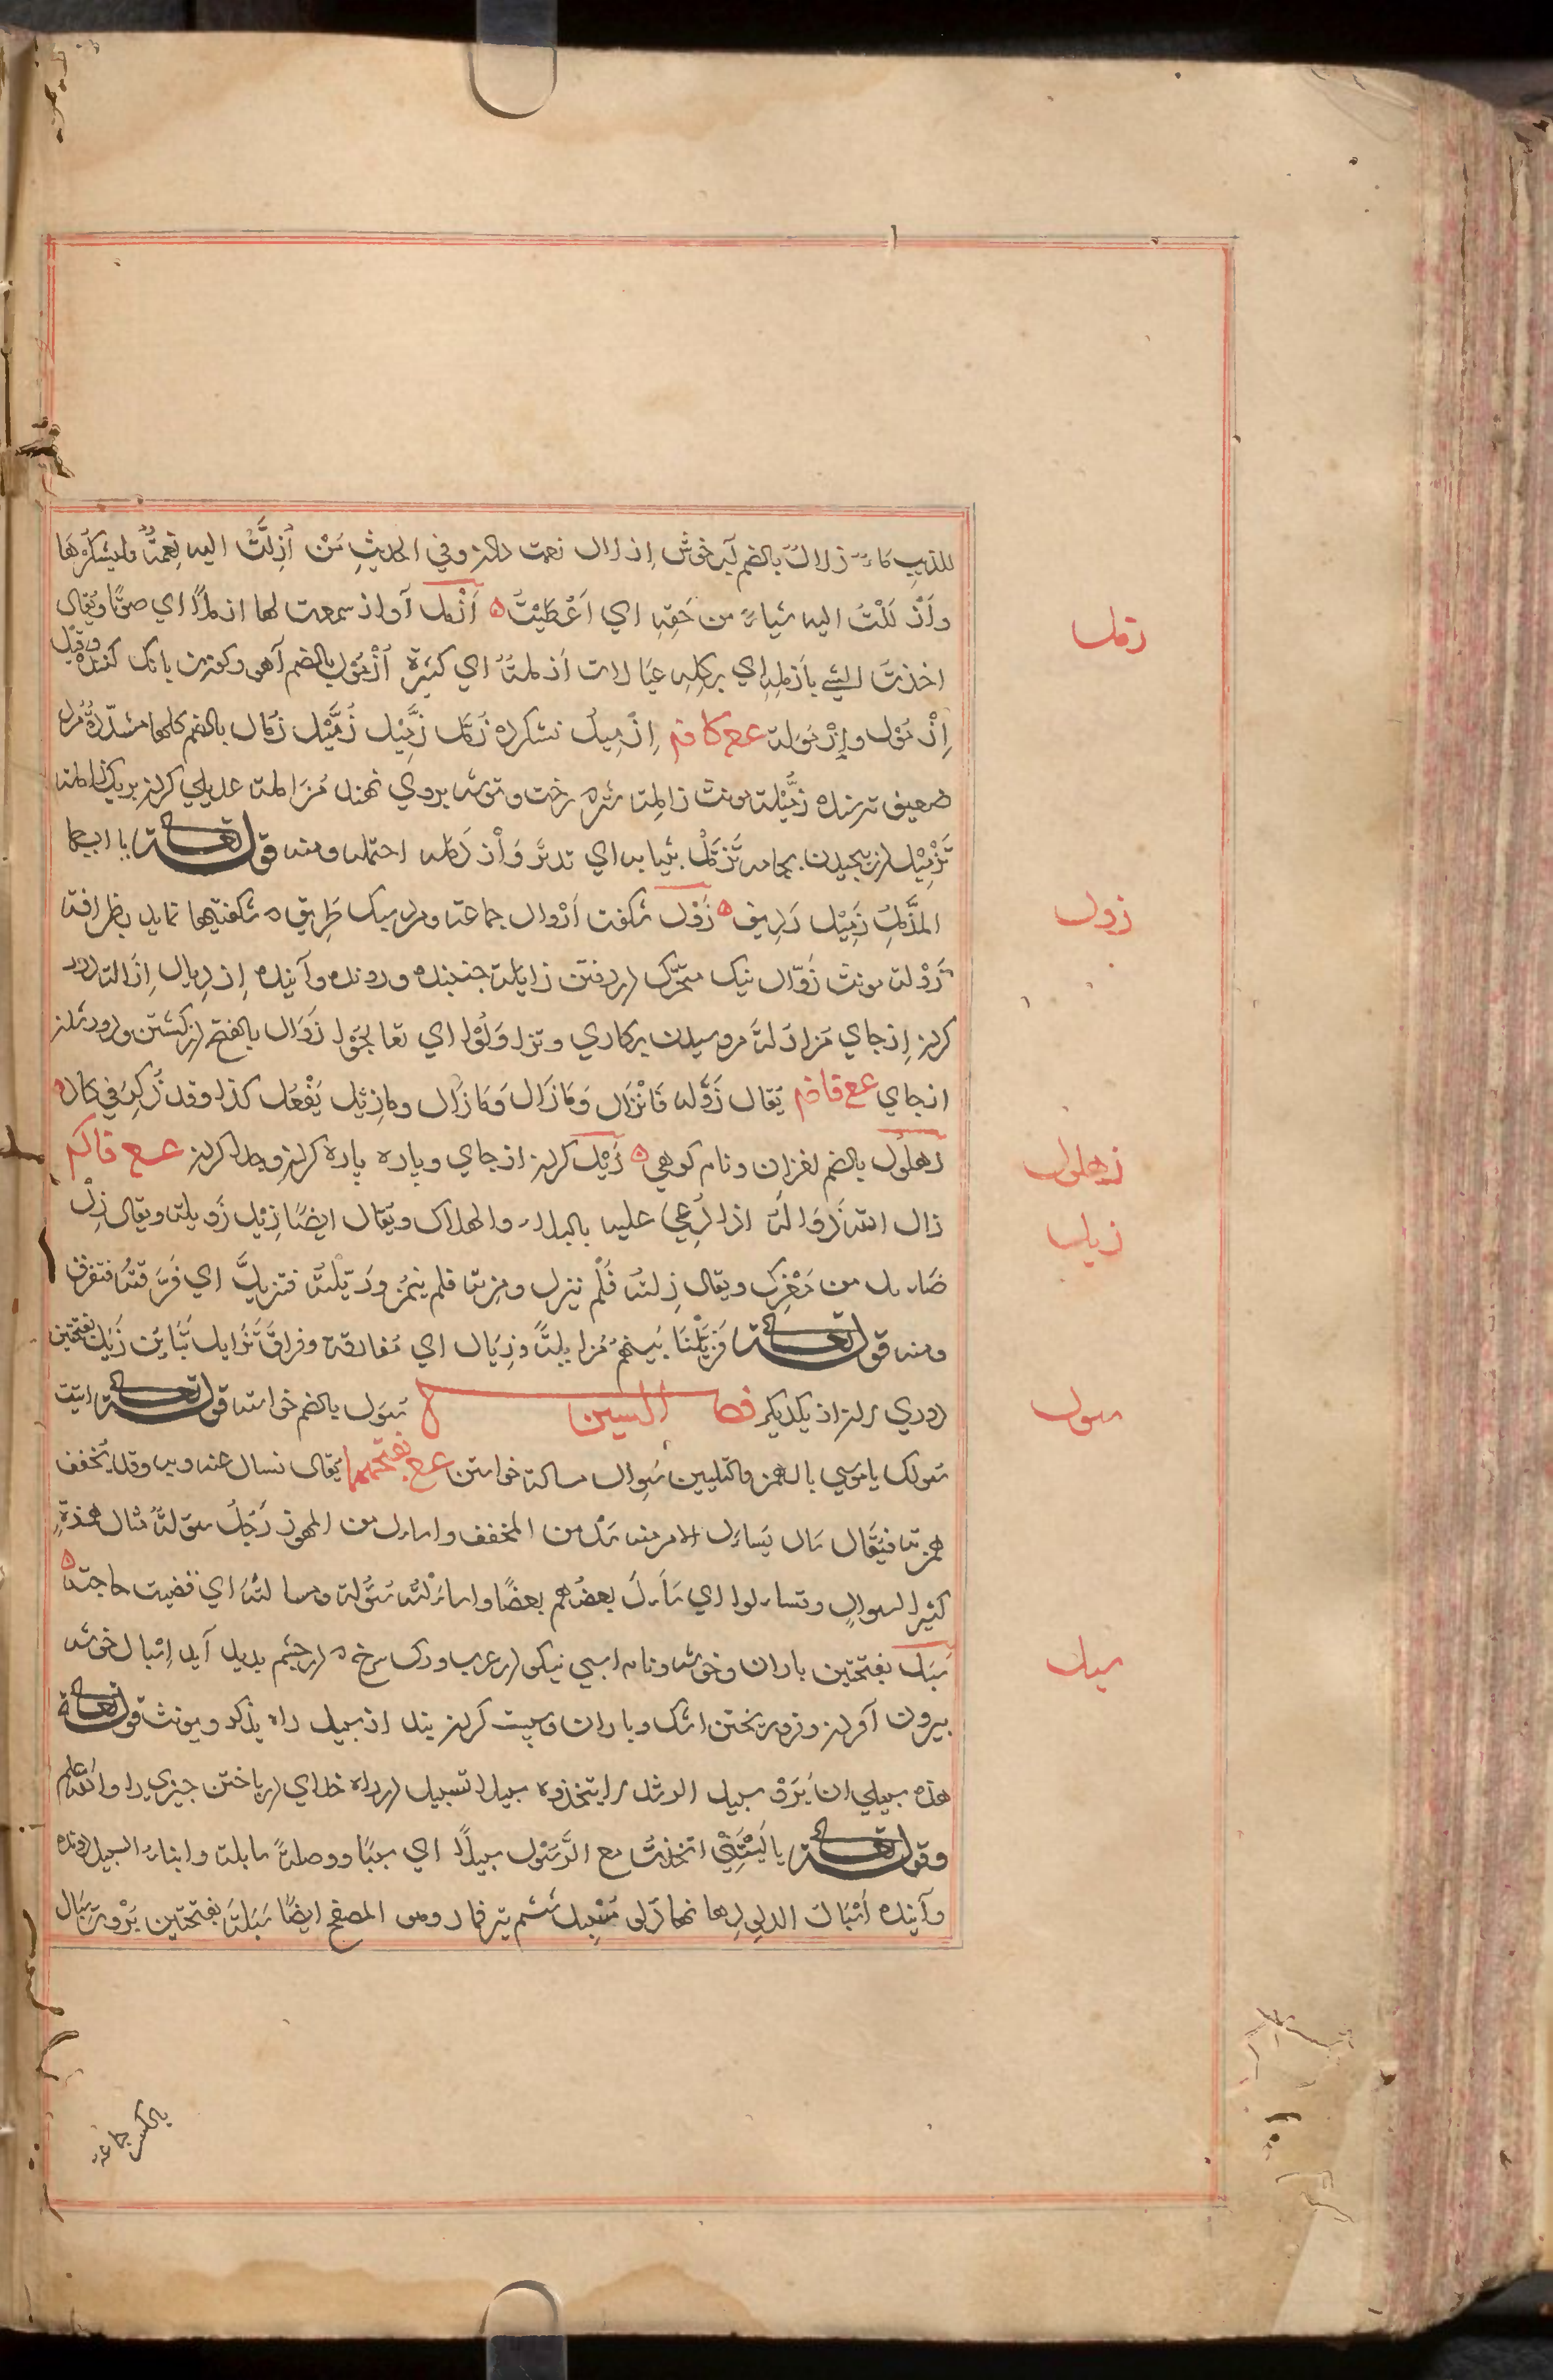 للذيب ماء زلال بالضم آب خوش إزلال نعمت دادن وفي الحديث مَن أُزِلَّتْ اليه نِعمةٌ فليشكرها
وأَزْلَلْتُ اليه شياءً من حَقِّه اي اَعْطَيْتُ أَزْمَل آواز سمعت لها ازملاً اي صوتًا ويُقال
زمل
اخذتَ الشيَ بأزمله اي بكله عيالات أزملة اي كثيرة أُزْمُول بالضم آهو وكوزن بانك كننده وقيل
اِزْمَوْل وإزْمَولة عع كا فم اِزْمِيل نشكرده زُمَّل زُمَّيْل زُمَّيْل زُمّال بالضم كلها مشدّدة مرد
ضعيف ترسنده زُمَّيْلة مونث زاملة شتر رخت وتوشه بروي نهند مُزاملة عديلي كردن بريك زاملة
تَزْمِيْل در پيچيدن بجامه تَزَمُّل بثيابه اي تدثّر وَأزدَمَله احتمله ومنه قوله تعالى يا ايها
المزّمل زَمِيْل رديف زَوْل شكفت أزوال جماعة ومرد سبك ظريق شكفتيها نمايد بظرافة
زول
زَوْلة مونث زَوّال نيك متحرّك در رفتن زايلة جنبنده ورونده وآينده ازدِيال اِزالة دور
كردن از جاي مزاولة مروسيدن بركاري وتزاولُوا اي تعالجوا زَوَال بالفتح در كشتن ودور شدن
از جاي عع فا فم يُقال زَوَّله فَانْزَال وَمَا زَال وَمَا زَال وما زِيْل يَفْعَل كذا وقد ذُكِرَ في كان
زهلول بالضم لغزان ونام كوهي زَيْل كردن از جاي وپاره پاره كردن وجدا كردن عع فا كم
زهلول
زال الله زَوَالَهُ اذا دُعِيَ عليه بالبلاء والهلاك ويُقال ايضًا زِيْل زَويله ويقال زِلْ
زيل
ضَاءنك من مَعْزك ويقال زِلته فَلَم ينزل ومِزته فلم ينمز وزَيَّلْتُه فتزيل اي فَرَّقته فتفرق
ومنه قوله تعالى فَزَيَّلْنَا بَينهم مُزايلةً وزِيَال اي مُفارقة وفراق تَزَايل تَبَايُن زَيَل بفتحتين
دوري دانها از يكديكر فصل السين سُوَل بالضم خواسته قوله تعالى اوتيت
سول
سُولك يا موسي بالهمز والتليين سُوال مسالة خواستن عع بفتحهما يُقال نسال عنه وبه وقد يُخفف
همزته فيُقال سَال يَسَال الامر منه سَل من المخفف واساءل من المهموز رَجُلٌ سُوَلةٌ مثال هُمَزةٍ
كثير السوال وتساءلوا اي سَأَل بعضُهم بعضًا واساءلته سُؤلة ومسالته اي قضيت حاجته
سَبَل بفتحتين باران وخوشه ونام اسبي نيكو در عرب ورك سرخ در چشم پديد آيد اِسبال خوشه
سبل
بيرون آوردن وفرو ريختن اشك وباران وپست كردن بند از سبيل راه يذكر ويونث قوله تعالى
هذه سبيلي ان يَرَوْ سبيل الرشد لا يتخذوه سبيلا تسبيل در راه خداي در باختن چيزي را والله اعلم
وقوله تعالى يا لَيْتَنِي اتخذت مع الرَّسُول سبيلاً اي سببًا ووصلةً سابلة وابناء السبيل رونده
وآينده أسبال الدلو لبها نها تلى مُسْبِل ششم تير قمار وهو المصفح ايضًا سَبَلة بفتحتين بَرْوت سبال
بالكسر جماعة